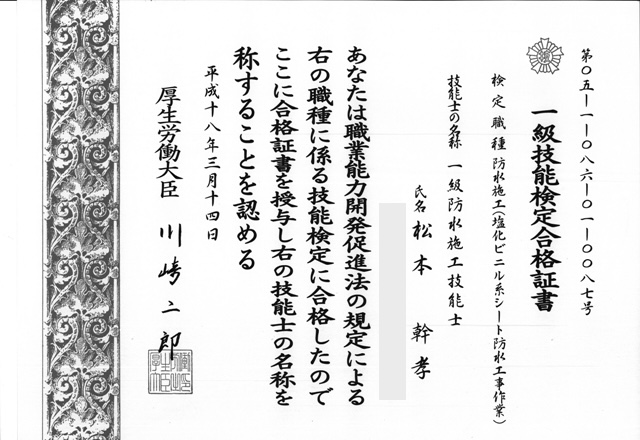 第〇五―一―〇八六―〇一―〇〇八七号
一級技能検定合格証書
検定職種 防水施工(塩化ビニル系シート防水工事作業)
技能士の名称 一級防水施工技能士
氏名 松本 幹孝
あなたは職業能力開発促進法の規定による
右の職種に係る技能検定に合格したので
ここに合格証書を授与し右の技能士の名称を
称することを認める
平成十八年三月十四日
厚生労働大臣 川崎二郎